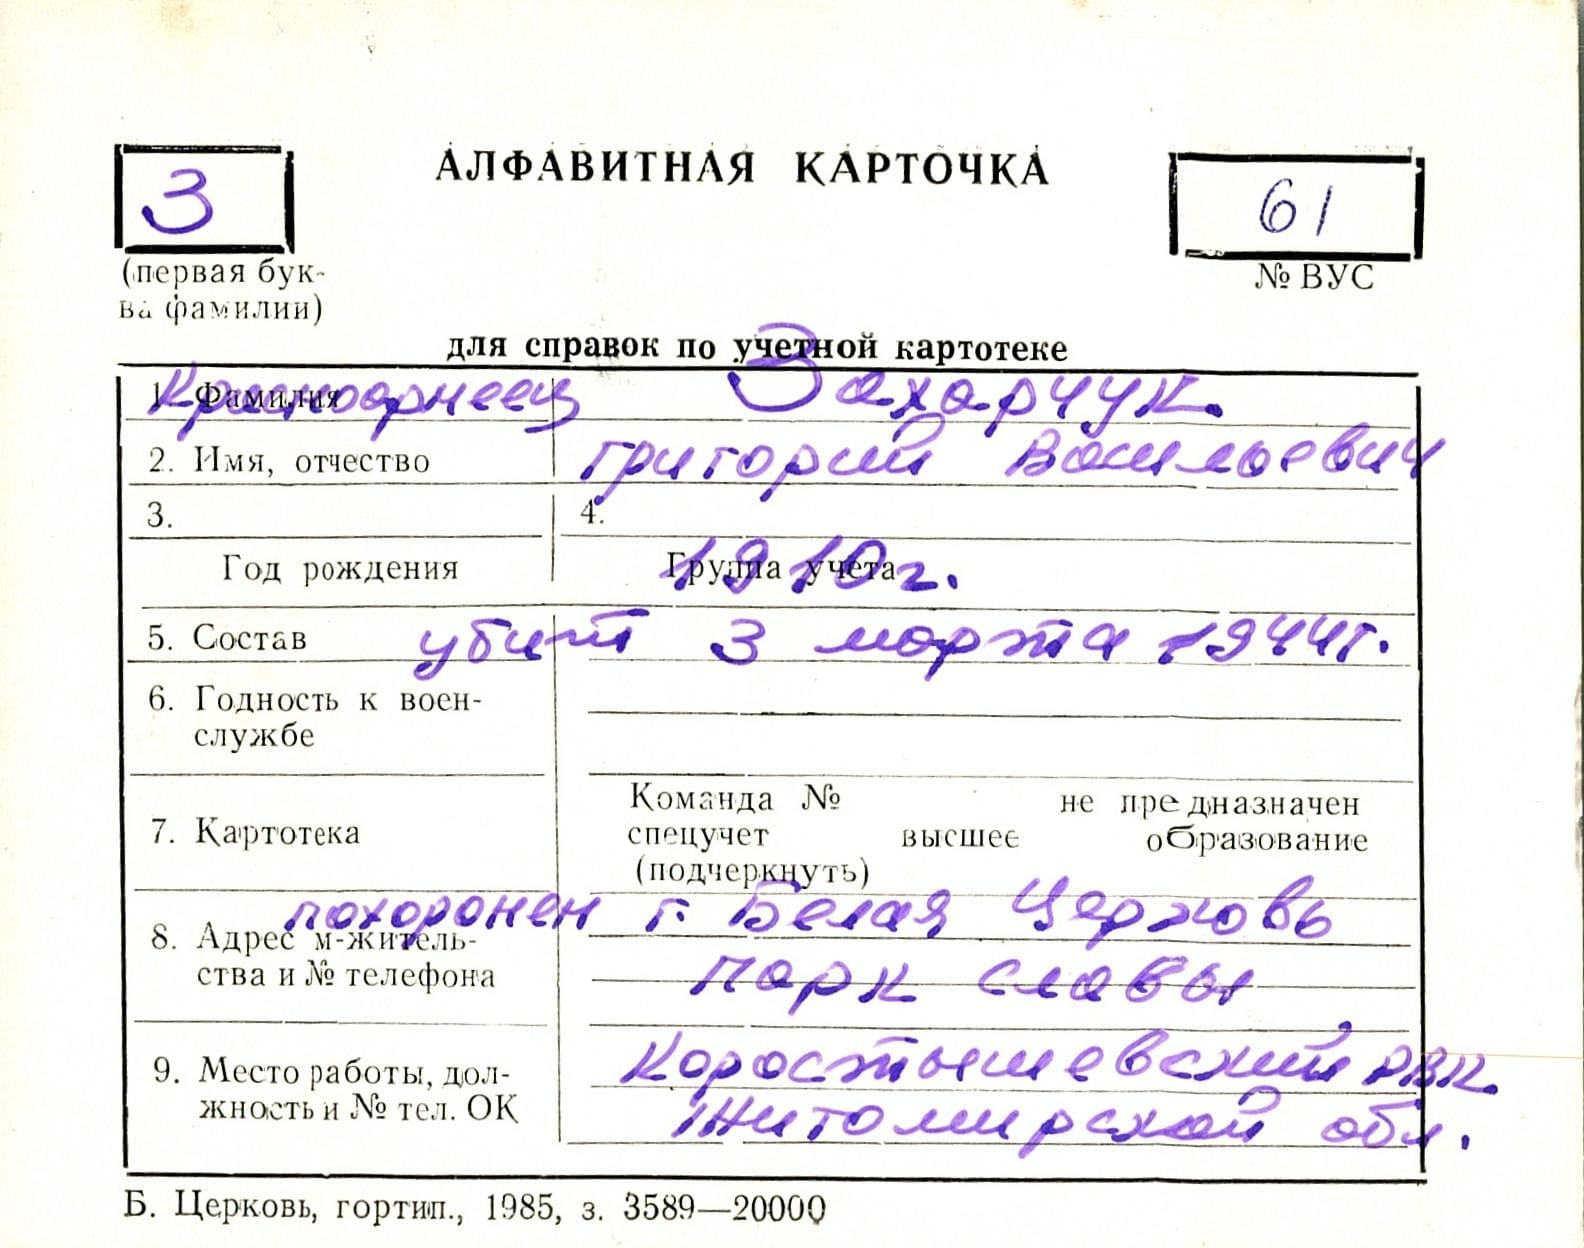 З
АЛФАВИТНАЯ КАРТОЧКА
61
(первая бук-
ва фамилии)
№ ВУС
для справок по учетной картотеке
1. Фамилия
Красноармеец Захарчук.
2. Имя, отчество Григорий Васильевич
3. 4.
Год рождения Группа учета
1910 г.
5. Состав убит 3 марта 1944г.
6. Годность к воен-
службе
Команда № не предназначен
7. Картотека спецучет высшее образование
(подчеркнуть)
похоронен г. Белая Церковь
8. Адрес м-житель-
ства и № телефона
парк славы
Коростышевский РВК
9. Место работы, дол-
жность и № тел. ОК
Житомирской обл.
Б. Церковь, гортип., 1985, з. 3589—20000